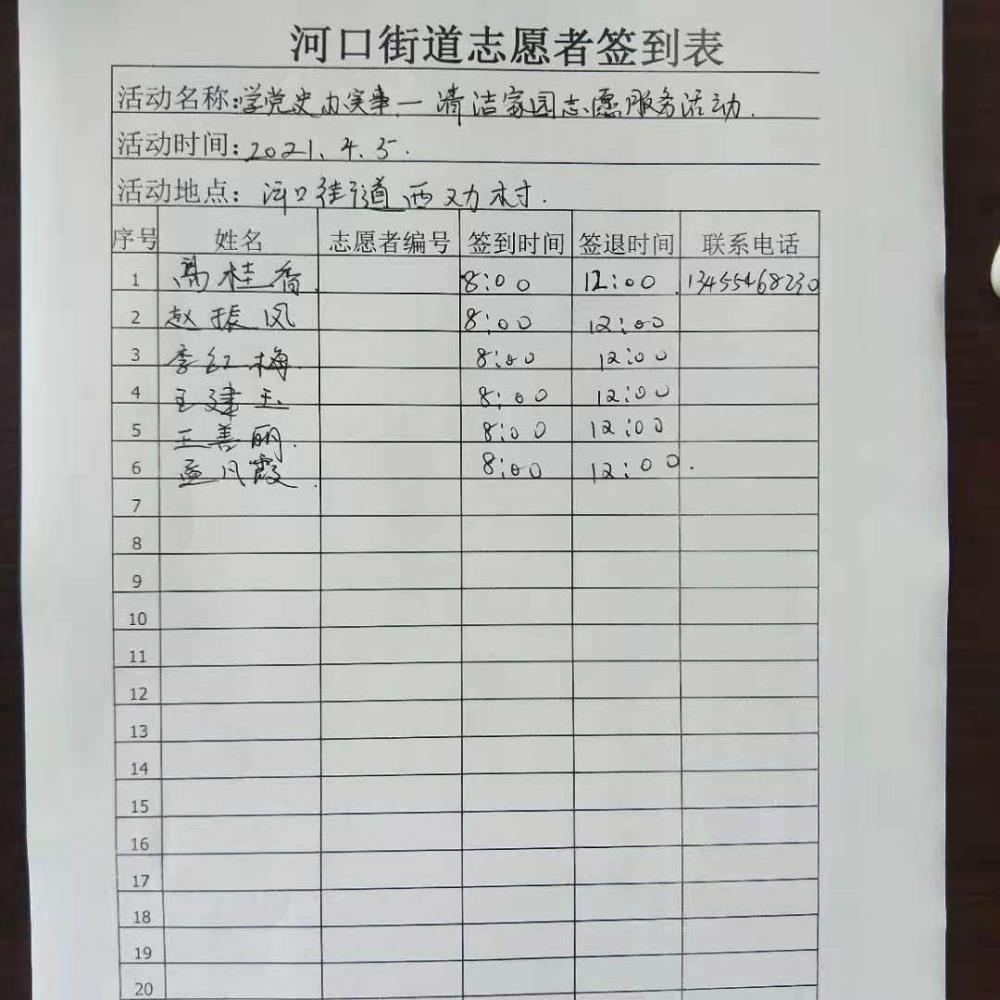 河口街道志愿者签到表
活动名称:学党史办实事—清洁家园志愿服务活动.
活动时间:2021.4.5.
活动地点:河口街道西劝村.
序号 姓名 志愿者编号 签到时间 签退时间 联系电话
1 高桂香. 8:00 12:00 13455468230
2 赵振凤 8:00 12:00
3 李红梅. 8:00 12:00
4 王建玉 8:00 12:00
5 王善丽. 8:00 12:00
6 孟凡霞. 8:00 12:00.
7
8
9
10
11
12
13
14
15
16
17
18
19
20